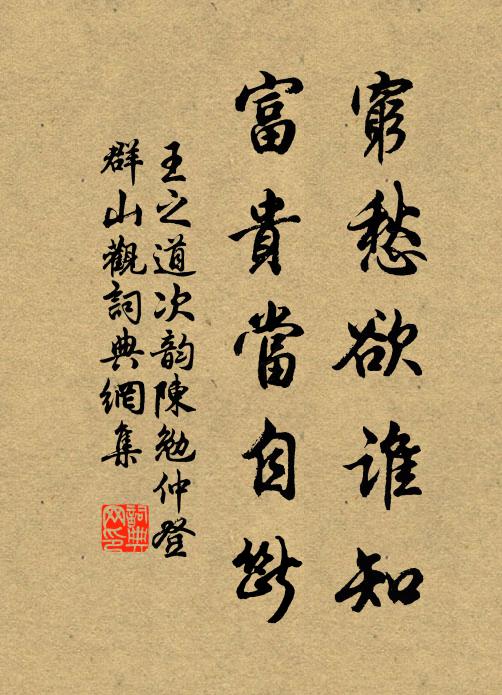 窮愁欲誰知
富貴當自斷
王之道次韵陳勉仲登
群山觀詞典網集
詞典网印